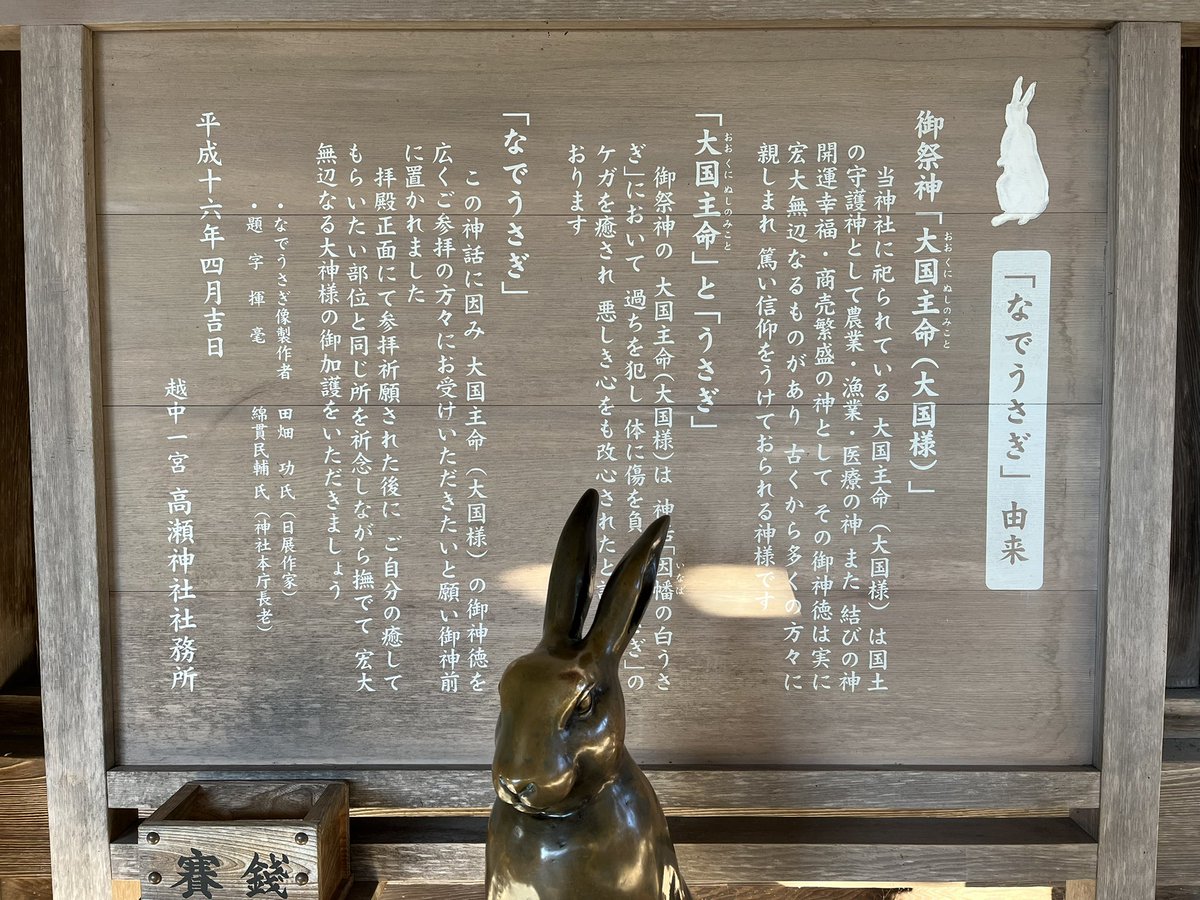 「なでうさぎ」由来
御祭神「大国主命（大国様）」
おおくにぬしのみこと
当神社に祀られている 大国主命（大国様）は国土
の守護神として農業・漁業・医療の神 また 結びの神
開運幸福・商売繁盛の神として その御神徳は実に
宏大無辺なるものがあり 古くから多くの方々に
親しまれ 篤い信仰をうけておられる神様です
「大国主命」と「うさぎ」
おおくにぬしのみこと
御祭神の 大国主命（大国様）は 神「因幡の白うさ
いなば
ぎ」において 過ちを犯し 体に傷を負ぎ」の
ケガを癒され 悪しき心をも改心されたと
おります
「なでうさぎ」
この神話に因み 大国主命（大国様）の御神徳を
広くご参拝の方々にお受けいただきたいと願い御神前
に置かれました
拝殿正面にて参拝祈願された後に ご自分の癒して
もらいたい部位と同じ所を祈念しながら撫でて 宏大
無辺なる大神様の御加護をいただきましょう
・なでうさぎ像製作者 田畑 功氏（日展作家）
・題字揮毫 綿貫民輔氏（神社本庁長老）
平成十六年四月吉日
越中一宮 高瀬神社社務所
賽銭